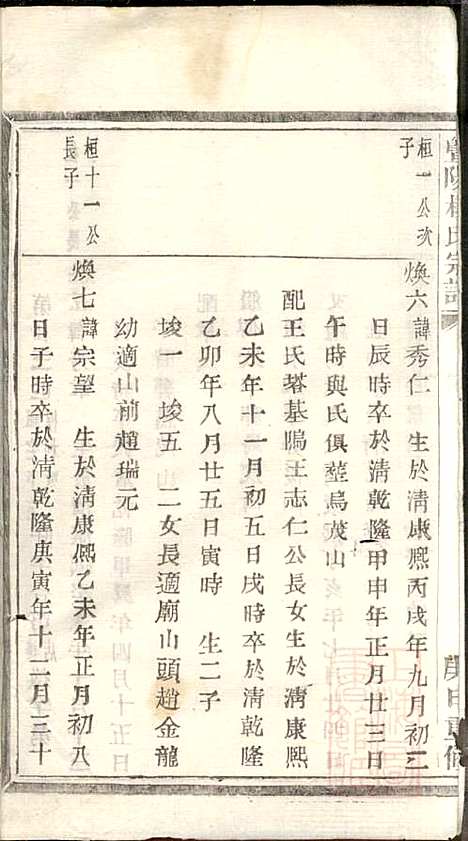 桓一公次
子
煥六諱秀仁 生於淸康熈丙戌年九月初二
日辰時卒於淸乾隆甲申年正月廿三日
午時與氏俱塟烏茂山
配王氏塔基隖王志仁公長女生於淸康熈
乙未年十一月初五日戌時卒於淸乾隆
乙卯年八月廿五日寅時 生二子
埈一 埈五 二女長適廟山頭趙金龍
幼適山前趙瑞元
桓十一公
長子
煥七諱宗望 生於淸康熈乙未年正月初八
日子時卒於淸乾隆庚寅年十二月三十